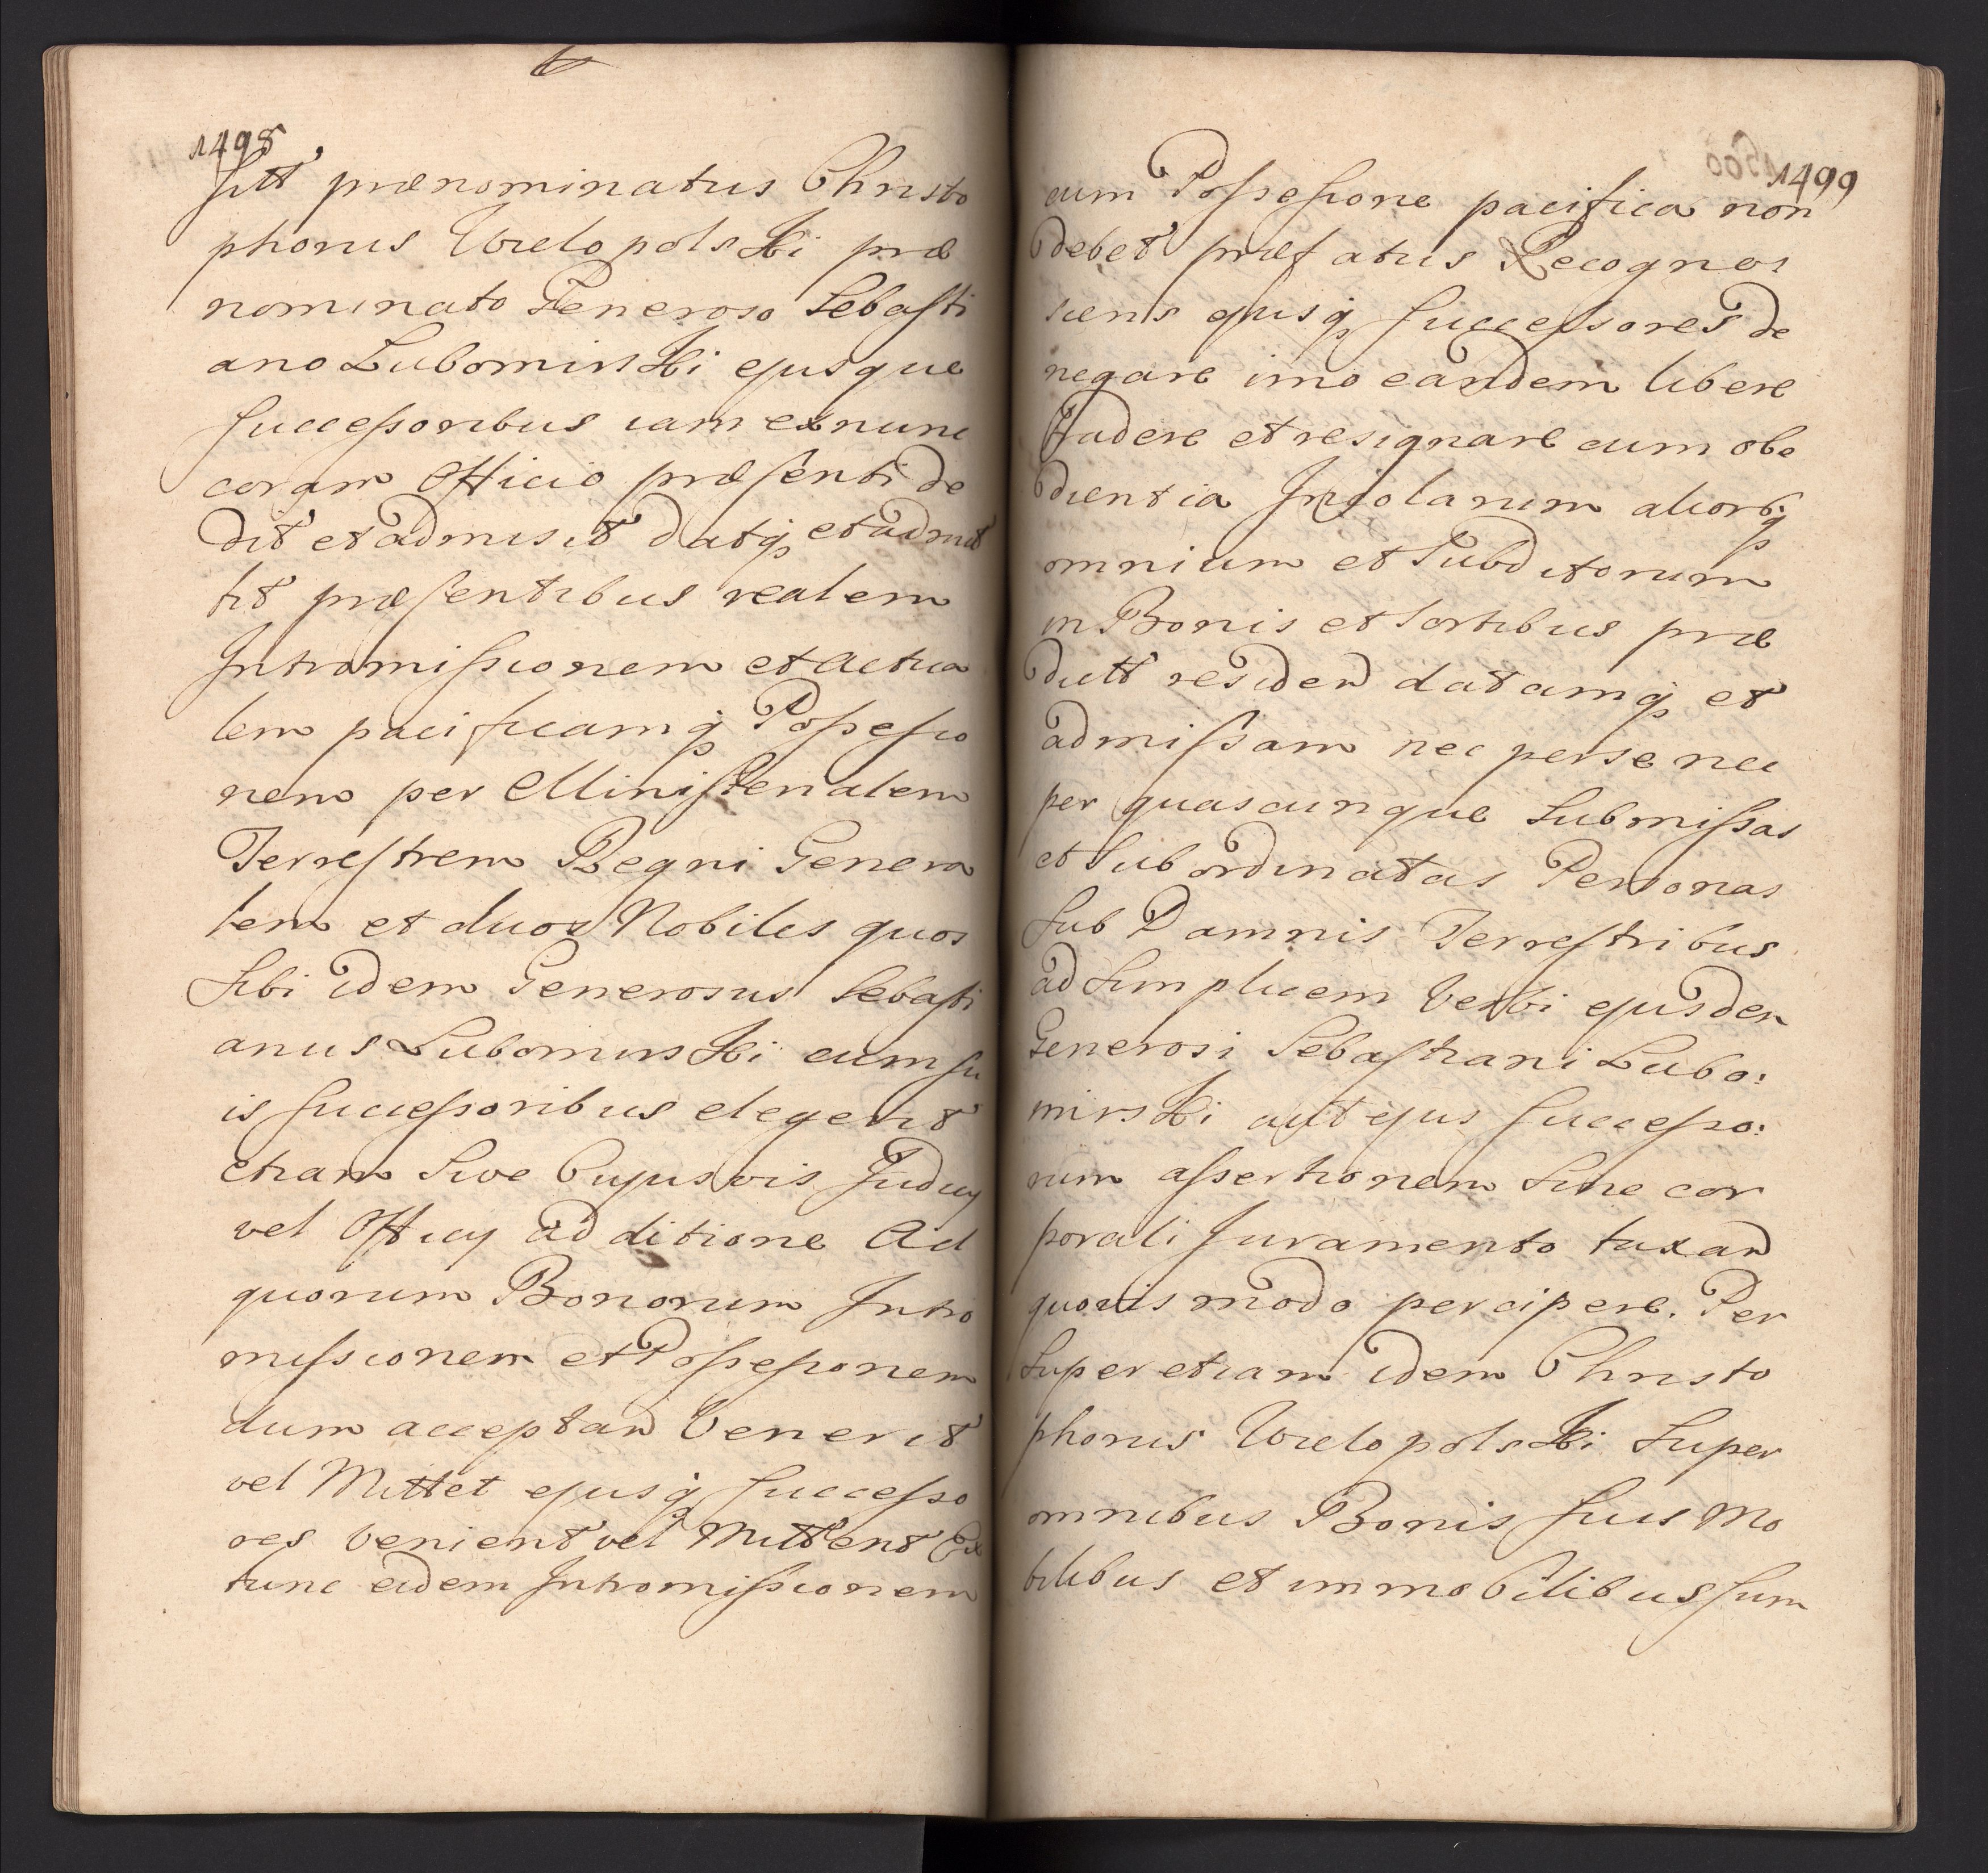 1498
sitt prænominatus Christo
phorus Wielopolski præ
nominato Generoso Sebasti
ano Lubomirski ejusque
Successoribus iam exnunc
coram Officio præsenti de
dit et admisit datq; et admit
tit præsentibus realem
Intromissionem et actua
lem pacificamq; Possessio
nem per Ministerialem
Terrestrem Regni Genera
lem et duos Nobiles quos
Sibi idem Generosus Sebasti
anus Lubomirski cum su
is Successoribus elegerit
etiam Sive Cujusvis Judicy
vel Officy additione Ad
quorum Bonorum Intro
missionem et Possessionem
dum acceptan Venerit
vel Mittet ejusq; Successo
res venient vel Mittent Ex
tunc eidem Intromissionem
1499
cum Possessione pacifica non
debet præfatus Recognos
ciens ejusq; Successores de
negare imo eandem libere
tradere et resignare cum obe
dientia Incolarum aliorq;
omnium et Subditorum
in Bonis et Sortibus præ
dictt residen datamq; et
admissam nec per se nec
per quascunque Submissas
et Subordinatas Personas
Sub Damnis Terrestribus
ad Simplicem Verbi ejusdem
Generosi Sebastiani Lubo:
mirski aut ejus Successo:
rum assertionem Sine cor
porali Juramento taxan
quovis modo percipere. Per
Super etiam idem Christo
phorus Wielopolski Super
omnibus Bonis Suis Mo
bilibus et immobilibus Sum